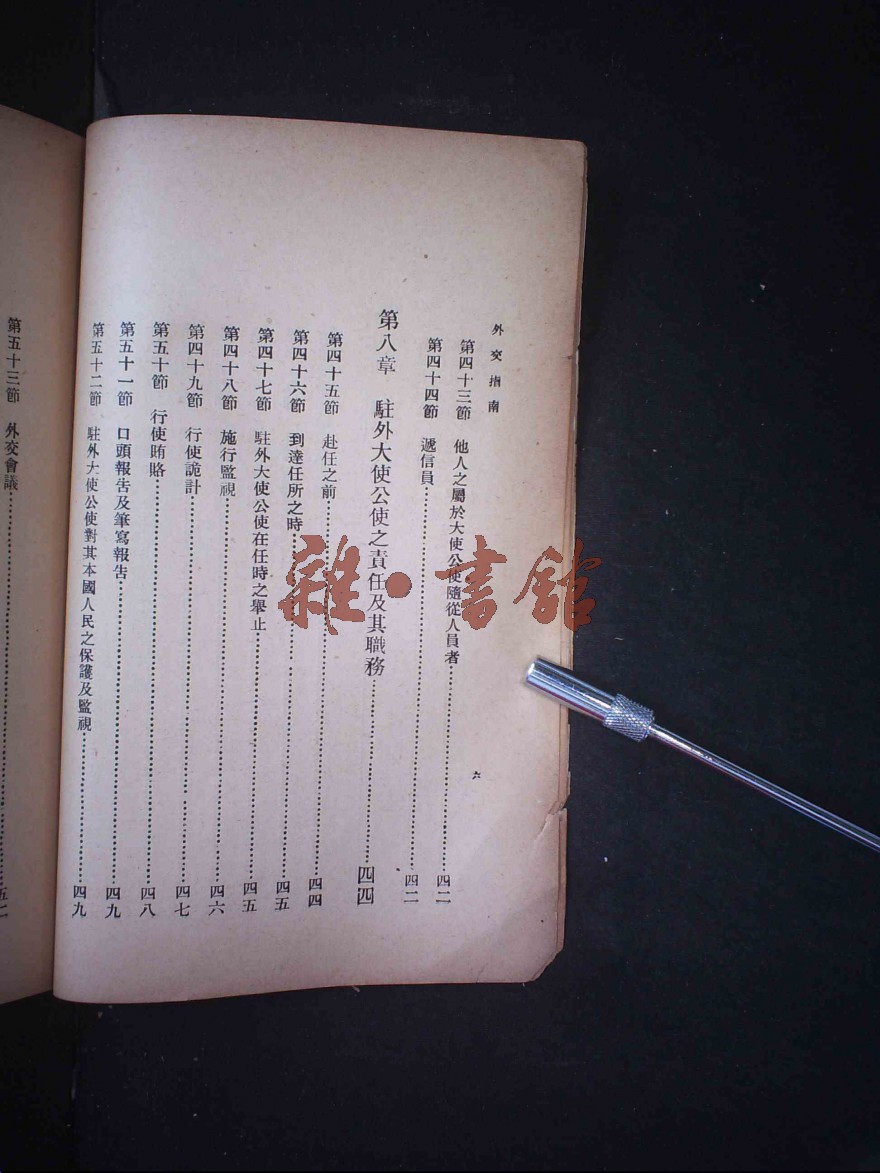 外交指南
六
第四十三節　他人之屬於大使公使隨從人員者……四二
第四十四節　遞信員……四二
第八章　駐外大使公使之責任及其職務……四四
第四十五節　赴任之前……四四
第四十六節　到達任所之時……四五
第四十七節　駐外大使公使在任時之舉止……四五
第四十八節　施行監視……四六
第四十九節　行使詭計……四七
第五十節　行使賄賂……四八
第五十一節　口頭報告及筆寫報告……四九
第五十二節　駐外大使公使對其本國人民之保護及監視……四九
第五十三節　外交會議……五二
雜·書館